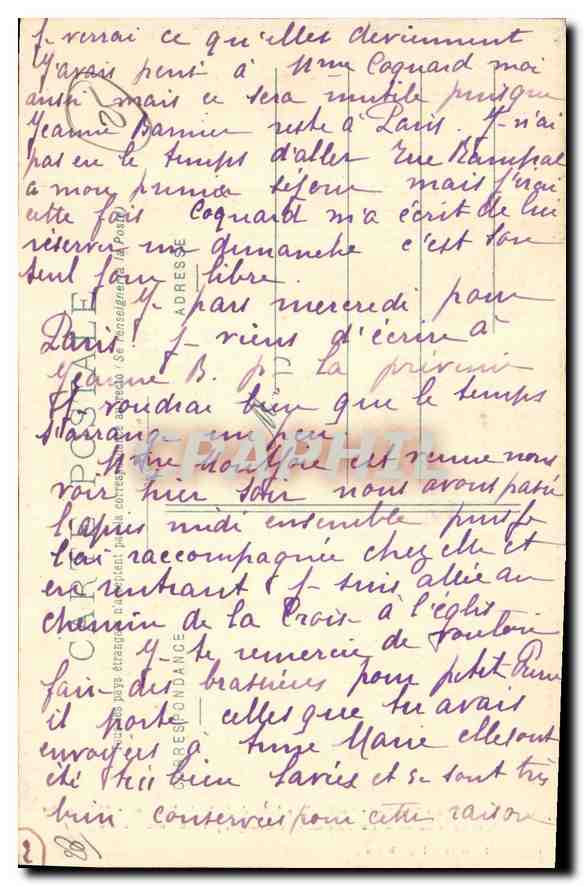 J. verrai ce qu'elles deviennent
J'avais pensé à Mme Coquard moi
aussi mais ce sera inutile puisque
Jeanne Barnier reste à Paris. J. n'ai
pas eu le temps d'aller rue Rampal
a mon premier séjour mais j'irai
cette fois Coquard m'a écrit de lui
réserver un dimanche c'est son
seul jour libre.
J. pars mercredi pour
Paris J. viens d'écrire à
Jeanne B. p. la prévenir
J. voudrai bien que le temps
s'arrange un peu
est venue nous
voir hier soir nous avons passé
l'après midi ensemble puis je
l'ai raccompagnée chez elle et
en rentrant J. suis allée au
chemin de la Croix à l'église
J. te remercie de vouloir
faire des brassières pour petit Pierre
il porte celles que tu avais
envoyées à Anne Marie elles ont
été très bien lavées et se sont très
bien conservées pour cette raison.
CARTE POSTALE
Tous les pays étrangers n'acceptent pas la correspondance au recto (Se renseigner à la Poste)
CORRESPONDANCE
ADRESSE
25
2
PRAPHIL